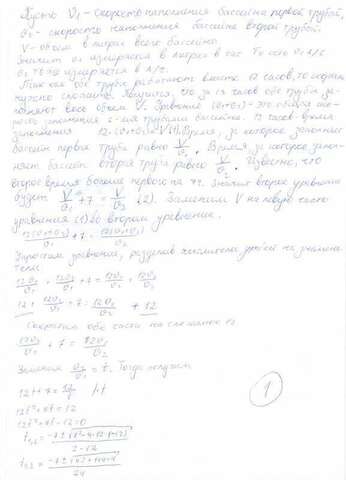 Пусть υ₁ - скорость наполнения бассейна первой трубой,
υ₂ - скорость наполнения бассейна второй трубой.
V - объем в литрах всего бассейна.
Значит υ₁ измеряется в литрах в час. То есть υ₁ л/с
υ₂ тоже измеряется в л/с.
Так как обе трубы работают вместе 12 часов, то скорости
нужно сложить. Получится, что за 12 часов обе трубы за-
полняют весь объем V. Уравнение (υ₁+υ₂) - это общая ско-
рость заполнения 2-мя трубами бассейна. 12 часов - время
заполнения 12·(υ₁+υ₂)=V (1). Время, за которое заполнит
бассейн первая труба равно V/υ₁. Время, за которое запол-
няет бассейн вторая труба равно V/υ₂. Известно, что
второе время больше первого на 7ч. Значит второе уравнение
будет V/υ₁ + 7 = V/υ₂ (2). Заменим V на левую часть
уравнения (1) во втором уравнение.
12(υ₁+υ₂)/υ₁ + 7 = 12(υ₁+υ₂)/υ₂
Упростим уравнение, разделив числитель дробей на знамена-
тели.
12υ₁/υ₁ + 12υ₂/υ₁ + 7 = 12υ₁/υ₂ + 12υ₂/υ₂
12 + 12υ₂/υ₁ + 7 = 12υ₁/υ₂ + 12
Сократим обе части на слагаемое 12
12υ₂/υ₁ + 7 = 12υ₁/υ₂
Замена υ₂/υ₁ = t. Тогда получим
12t+7=12/t |·t
12t²+7t=12
12t²+7t-12=0
t₁,₂ = (-7±√(7²-4·12·(-12)))/(2·12)
24
1